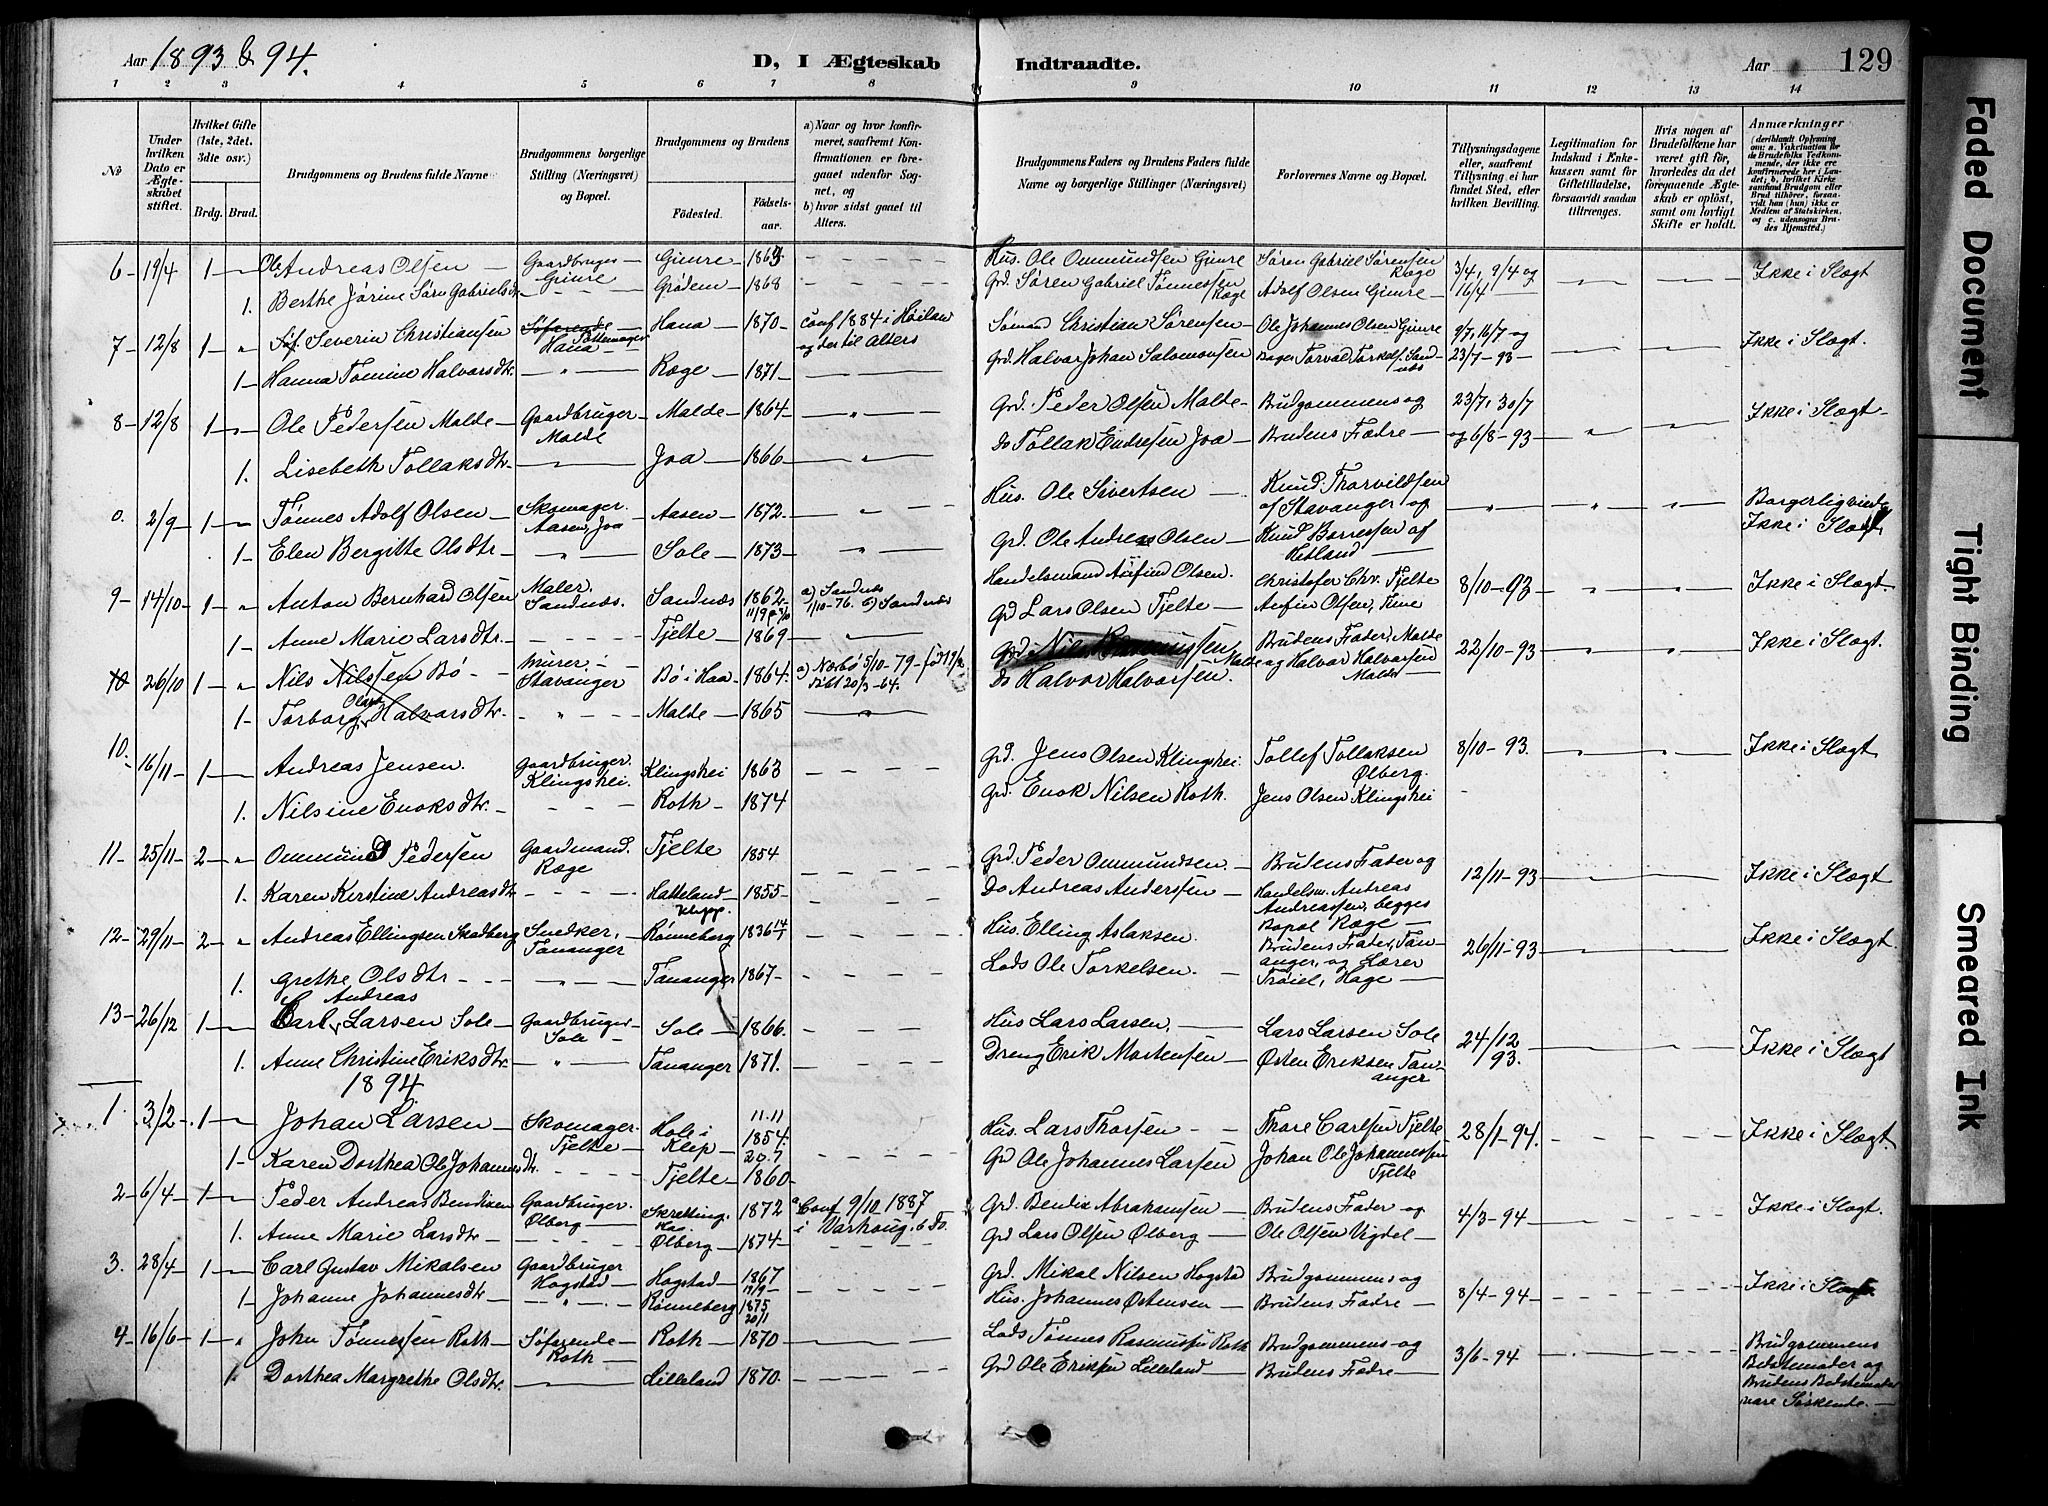 Aar 1893 & 94.
D, I Ægteskab Indtraadte.
Aar 129
1 2 3 4 5 6 7 8 9 10 11 12 13 14
No
Under hvilken Dato er Ægteskabet stiftet.
Hvilket Gifte (1ste, 2det, 3dte osv.)
Brdg. Brud.
Brudgommens og Brudens fulde Navne
Brudgommens borgerlige Stilling (Næringsvei) og Bopæl.
Brudgommens og Brudens
Fødested. Fødselsaar.
a) Naar og hvor konfirmeret, saafremt Konfirmationen er foregaaet udenfor Sognet, og b) hvor sidst gaaet til Alters.
Brudgommens Faders og Brudens Faders fulde Navne og borgerlige Stillinger (Næringsvei)
Forlovernes Navne og Bopæl.
Tillysningsdagene eller, saafremt Tillysning ei har fundet Sted, efter hvilken Bevilling.
Legitimation for Indskud i Enkekassen samt for Giftetilladelse, forsaavidt saadan tiltrænges.
Hvis nogen af Brudefolkene har været gift før, hvorledes da det foregaaende Ægteskab er opløst, samt om lovligt Skifte er holdt.
Anmærkninger (deriblandt Oplysning om: a. Vakcination for de Brudefolks Vedkommende, der ikke ere konfirmerede her i Landet; b. hvilket Kirkesamfund Brudgom eller Brud tilhører, forsaavidt han (hun) ikke er Medlem af Statskirken, og c. udensogns Brudes Hjemsted.)
6 - 19/4 1 - Ole Andreas Olsen - Gaardbruger - Gimre Gimre - 1863 Hus. Ole Ommundsen Gimre Søren Gabriel Sørensen Ræge 3/4, 9/4 og 16/4 Ikke i Slægt
1. Berthe Jørine Sørn Gabrielsdtr Grødem - 1868 Grd. Søren Gabriel Tønnessen Ræge Adolf Olsen Gimre -
7 - 12/8 1 - Severin Christiansen Pottemager Hana Hana - 1870 - Conf 1884 i Høiland og der til Alters Sømand Christian Sørensen - Ole Johannes Olsen Gimre 9/7, 16/7 og 23/7 - 93 - Ikke i Slægt.
1 - Hanna Tomine Halvorsdtr. - " - Ræge - 1871 - Grd. Halvor Johan Salomonsen Bager Torval Torkels. Sandnæs
8 - 12/8 1 - Ole Pedersen Malde - Gaardbruger - Malde Malde - 1864 - Grd. Peder Olsen Malde - Brudgommens og 23/7, 30/7 og 6/8 - 93 - Ikke i Slægt -
1. Lisebeth Tollaksdtr - Joa - 1866 - do Tollak Endresen Joa - Brudens Fædre -
0. 2/9 - 1 - Tønnes Adolf Olsen - Skomager. Aasen, Joa Aasen - 1872. Hus. Ole Sivertsen - Knud Thorvildsen af Stavanger og Borgerligviede Ikke i Slægt
1 - Elen Bergitte Olsdtr - " - Sole - 1873 - Grd. Ole Andreas Olsen - Knud Borressen af Hetland -
9 - 14/10 - 1 - Anton Bernhard Olsen Maler. Sandnæs. Sandnæs 1862 a) Sandnæs 1/10 - 76. b) Sandnæs Handelsmand Olsen. Christofer Chr. Tjelte 8/10 - 93 Ikke i Slægt.
1 - Anne Marie Larsdtr. - Tjelte - 1869 - Grd Lars Olsen Tjelte - Olsen,
10 26/10 1 - " Nils Nilssen Bø - Murer. Stavanger Bø i Haa - 1864. a) Nærbø 5/10 - 79 - Grd. Nils Rasmussen Brudens Fader, Malde og Halvor Halvorsen Malde - 22/10 - 93 Ikke i Slægt.
1 - Torborg Halvorsdtr. Malde - 1865 do Halvor Halvorsen.
10. 16/11 1 - Andreas Jensen. Gaardbruger. Klingshei. Klingshei 1863 Grd. Jens Olsen Klingshei. Tollef Tollaksen Ølberg. 8/10 - 93. Ikke i Slægt
1. Nilsine Enoksdtr. - Roth - 1874 Grd. Enok Nilsen Roth. Jens Olsen Klingshei
11 - 25/11 - 2 - " Ommund Pedersen Gaardmand. Ræge Tjelte 1854 Grd. Peder Ommundsen. - Brudens Fader og 12/11 - 93 Ikke i Slægt
1. Karen Kirstine Andreasdtr Hatteland Klepp. 1855 - Do Andreas Anderssen - Handelsm. Andreas Andreassen, begges Bopæl Ræge -
12 - 29/11 - 2 - " Andreas Ellingsen Skadberg Snedker, Tananger Rønneberg 1836 14/1 Hus. Elling Aslaksen. Brudens Fader, Tananger, og Lærer Trøiel, Hage - 26/11 - 93 Ikke i Slægt
1. Grethe Olsdtr - - " - Tananger 1867 - Lods Ole Torkelsen. -
13 - 26/12 1 - Carl Andreas Larsen Sole - Gaardbruger - Sole - Sole - 1866. Hus Lars Larsen. - Lars Larsen Sole 24/12 93. Ikke i Slægt
1. Anne Christine Eriksdtr. - " - Tananger 1871. Dreng Erik Mortensen - Østen Eriksen Tananger
1894
1. 3/2 - 1 - Johan Larsen - Skomager - Tjelte - Hole i Klep - 11.11 1854. Hus. Lars Thorsen - - Thore Carlsen Tjelte 28/1 - 94. Ikke i Slægt.
1 - Karen Dorthea Ole Johannesdtr. Tjelte - 20.7 1860 - Grd Ole Johannes Larsen Johan Ole Johannessen Tjelte
2 - 6/4 - 1 - Peder Andreas Bendixen Gaardbruger. Ølberg - Skretting, Haa. 1872 a Conf 9/10 1887 i Varhoug. b Do. Grd. Bendix Abrahamsen - Brudens Fader og 4/3 - 94 - Ikke i Slægt.
1. Anne Marie Larsdtr - Ølberg - 1874 - Grd Lars Olsen Ølberg - Ole Olsen Vigdel -
3. 28/4 - 1 - Carl Gustav Mikalsen Gaardbruger Hogstad - Hogstad - 1867 Grd. Mikal Nilsen Hogstad Brudgommens og 8/4 - 94 - Ikke i Slægt
1 - Johanne Johannesdtr - - " - Rønneberg 1875 20/1 Hus. Johannes Østensen - Brudens Fædre -
4 - 16/6 - 1 - " John Tønnessen Roth - Søfarende - Roth - Roth - 1870 Lods Tønnes Rasmussen Roth Brudgommens og 3/6 - 94 Brudgommens Bedstemoder og Brudens Bedstemoder vare Søskende. -
1 Dorthea Margrethe Olsdtr. - Lilleland 1870. Grd Ole Eriksen Lilleland - Brudens Fædre -
Faded Document
Tight Binding
Smeared Ink